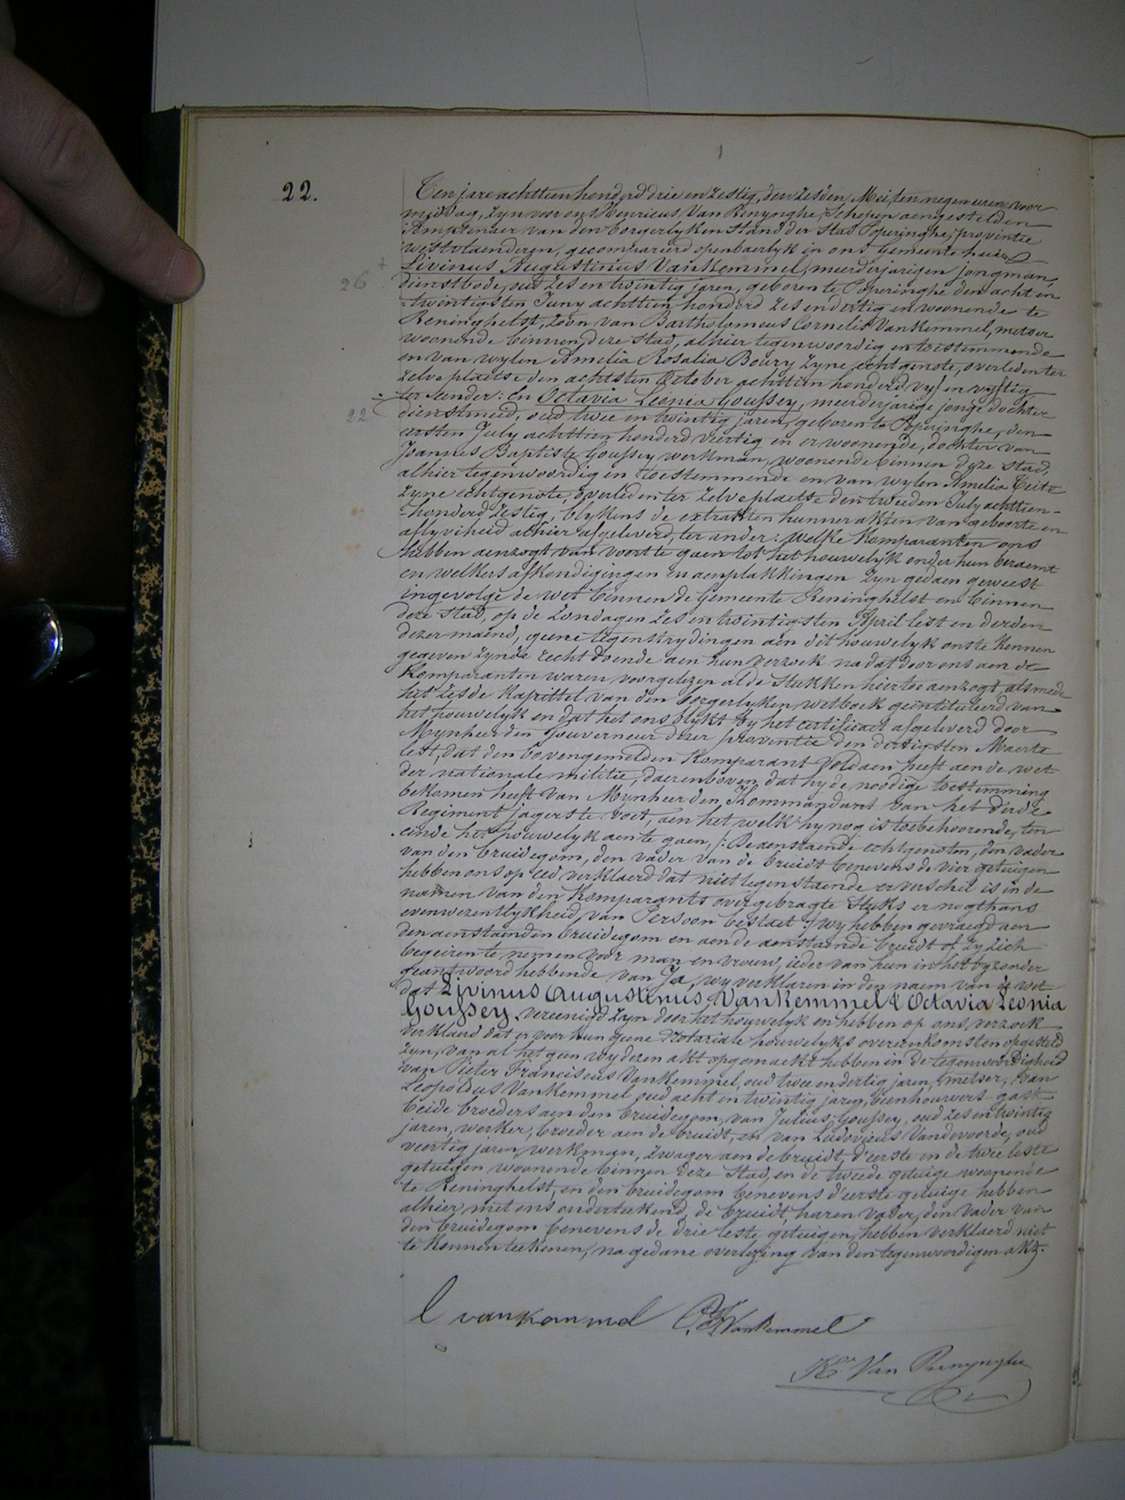 22.
Ten jare achttien honderd drie en zestig, den zesden Mei, ten negen uren voor
middag, zyn voor ons Henricus Van Renynghe, Schepen aengestelden
Amptenaer van den borgerlyken stand der stad Poperinghe, provintie
westvlaenderen, gecompareerd openbaerlyk in ons Gemeente huis
Livinus Augustinus VanKemmel, meerderjarigen jongman,
26
dienstbode, oud zes en twintig jaren, geboren te Poperinghe den acht en
twintigsten Juny achttien honderd zes en dertig en woonende te
Reninghelst, zoon van Bartholomeus Cornelis VanKemmel, metser
woonende binnen deze stad, alhier tegenwoordig en toestemmende
en van wylen Amelia Rosalia Boury zyne echtgenote, overleden ter
zelve plaetse den achtsten October achttien honderd vyf en vyftig
ter eender: En Octavia Leonia Goussey, meerderjarige jonge dochter
22
dienstmeid, oud twee en twintig jaren, geboren te Poperinghe, den
eersten July achttien honderd veertig en er woonende, dochter van
Joannes Baptiste Goussey werkman, woonende binnen deze stad,
alhier tegenwoordig en toestemmende en van wylen Amelia
zyne echtgenote, overleden ter zelve plaetse den tweeden July achttien-
honderd zestig, blykens de extrakten hunner akten van geboorte en
aflyvigheid alhier afgeleverd, ter ander: welke Komparanten ons
hebben aenzogt van voort te gaen tot het houwelyk onder hun beraemt
en welkers afkondigingen en aenplakkingen zyn gedaen geweest
ingevolge de wet binnen de Gemeente Reninghelst en binnen
deze stad, op de Zondagen zes en twintigsten April lest en derden
dezer maend, geene tegenstrydingen aen dit houwelyk ons te kennen
gegeven zynde recht doende aen hun verzoek na dat door ons aen de
Komparanten waren voorgelezen al de Stukken hier toe aenzogt, als mede
het zesde Kapittel van den borgerlyken wetboek geïntituleerd van
het houwelyk en dat het ons blykt by het certificaet afgeleverd door
Mynheer den Gouverneur dezer provintie den dertigsten Maerte
lest, dat den bovengemelden Komparant voldaen heeft aen de wet
der nationale militie, daerenboven dat hy de noodige toestemming
bekomen heeft van Mynheer den Kommandant van het derde
Regiment jagers te voet, aen het welk hy nog is toebehoorende, ten
einde het houwelyk aen te gaen, /: De aenstaende echtgenoten, den vader
van den bruidegom, den vader van de bruidt benevens de vier getuigen
hebben ons op eed verklaerd dat niet tegenstaende er verschil is in de
namen van den Komparants overgebragte stuks er nogthans
evenwezentlykheid van Persoon bestaet :/ wy hebben gevraegd aen
den aenstaenden bruidegom en aen de aenstaende bruidt of zy zich
begeeren te nemen voor man en vrouw, ieder van hun in het byzonder
geantwoord hebbende van Ja, wy verklaren in den naem van de wet
dat Livinus Augustinus VanKemmel & Octavia Leonia
Goussey vereenigd zyn door het houwelyk en hebben op ons verzoek
verklaerd dat er voor hun geene Notariale houwelyks overeenkomsten opgesteld
zyn, van al het geen wy dezen akt opgemaekt hebben in de tegenwoordigheid
van Pieter Franciscus VanKemmel, oud twee en dertig jaren, metser, van
Leopoldus VanKemmel oud acht en twintig jaren, beenhouwers gast
beide broeders aen den bruidegom, van Julius Goussey, oud zes en twintig
jaren, werker, broeder aen de bruidt, en van Ludovicus Vandevoorde, oud
veertig jaren, werkman, zwager aen de bruidt d'eerste en de twee leste
getuigen woonende binnen deze stad, en de tweede getuige woonende
te Reninghelst, en den bruidegom benevens d'eerste getuige hebben
alhier, met ons onderteekend, de bruidt, haren vader, den vader van
den bruidegom benevens de drie leste getuigen, hebben verklaerd niet
te konnen teekenen, na gedane overlezing van den tegenwoordigen akt.
L vankemmel P.F. VanKemmel
Hri Van Renynghe